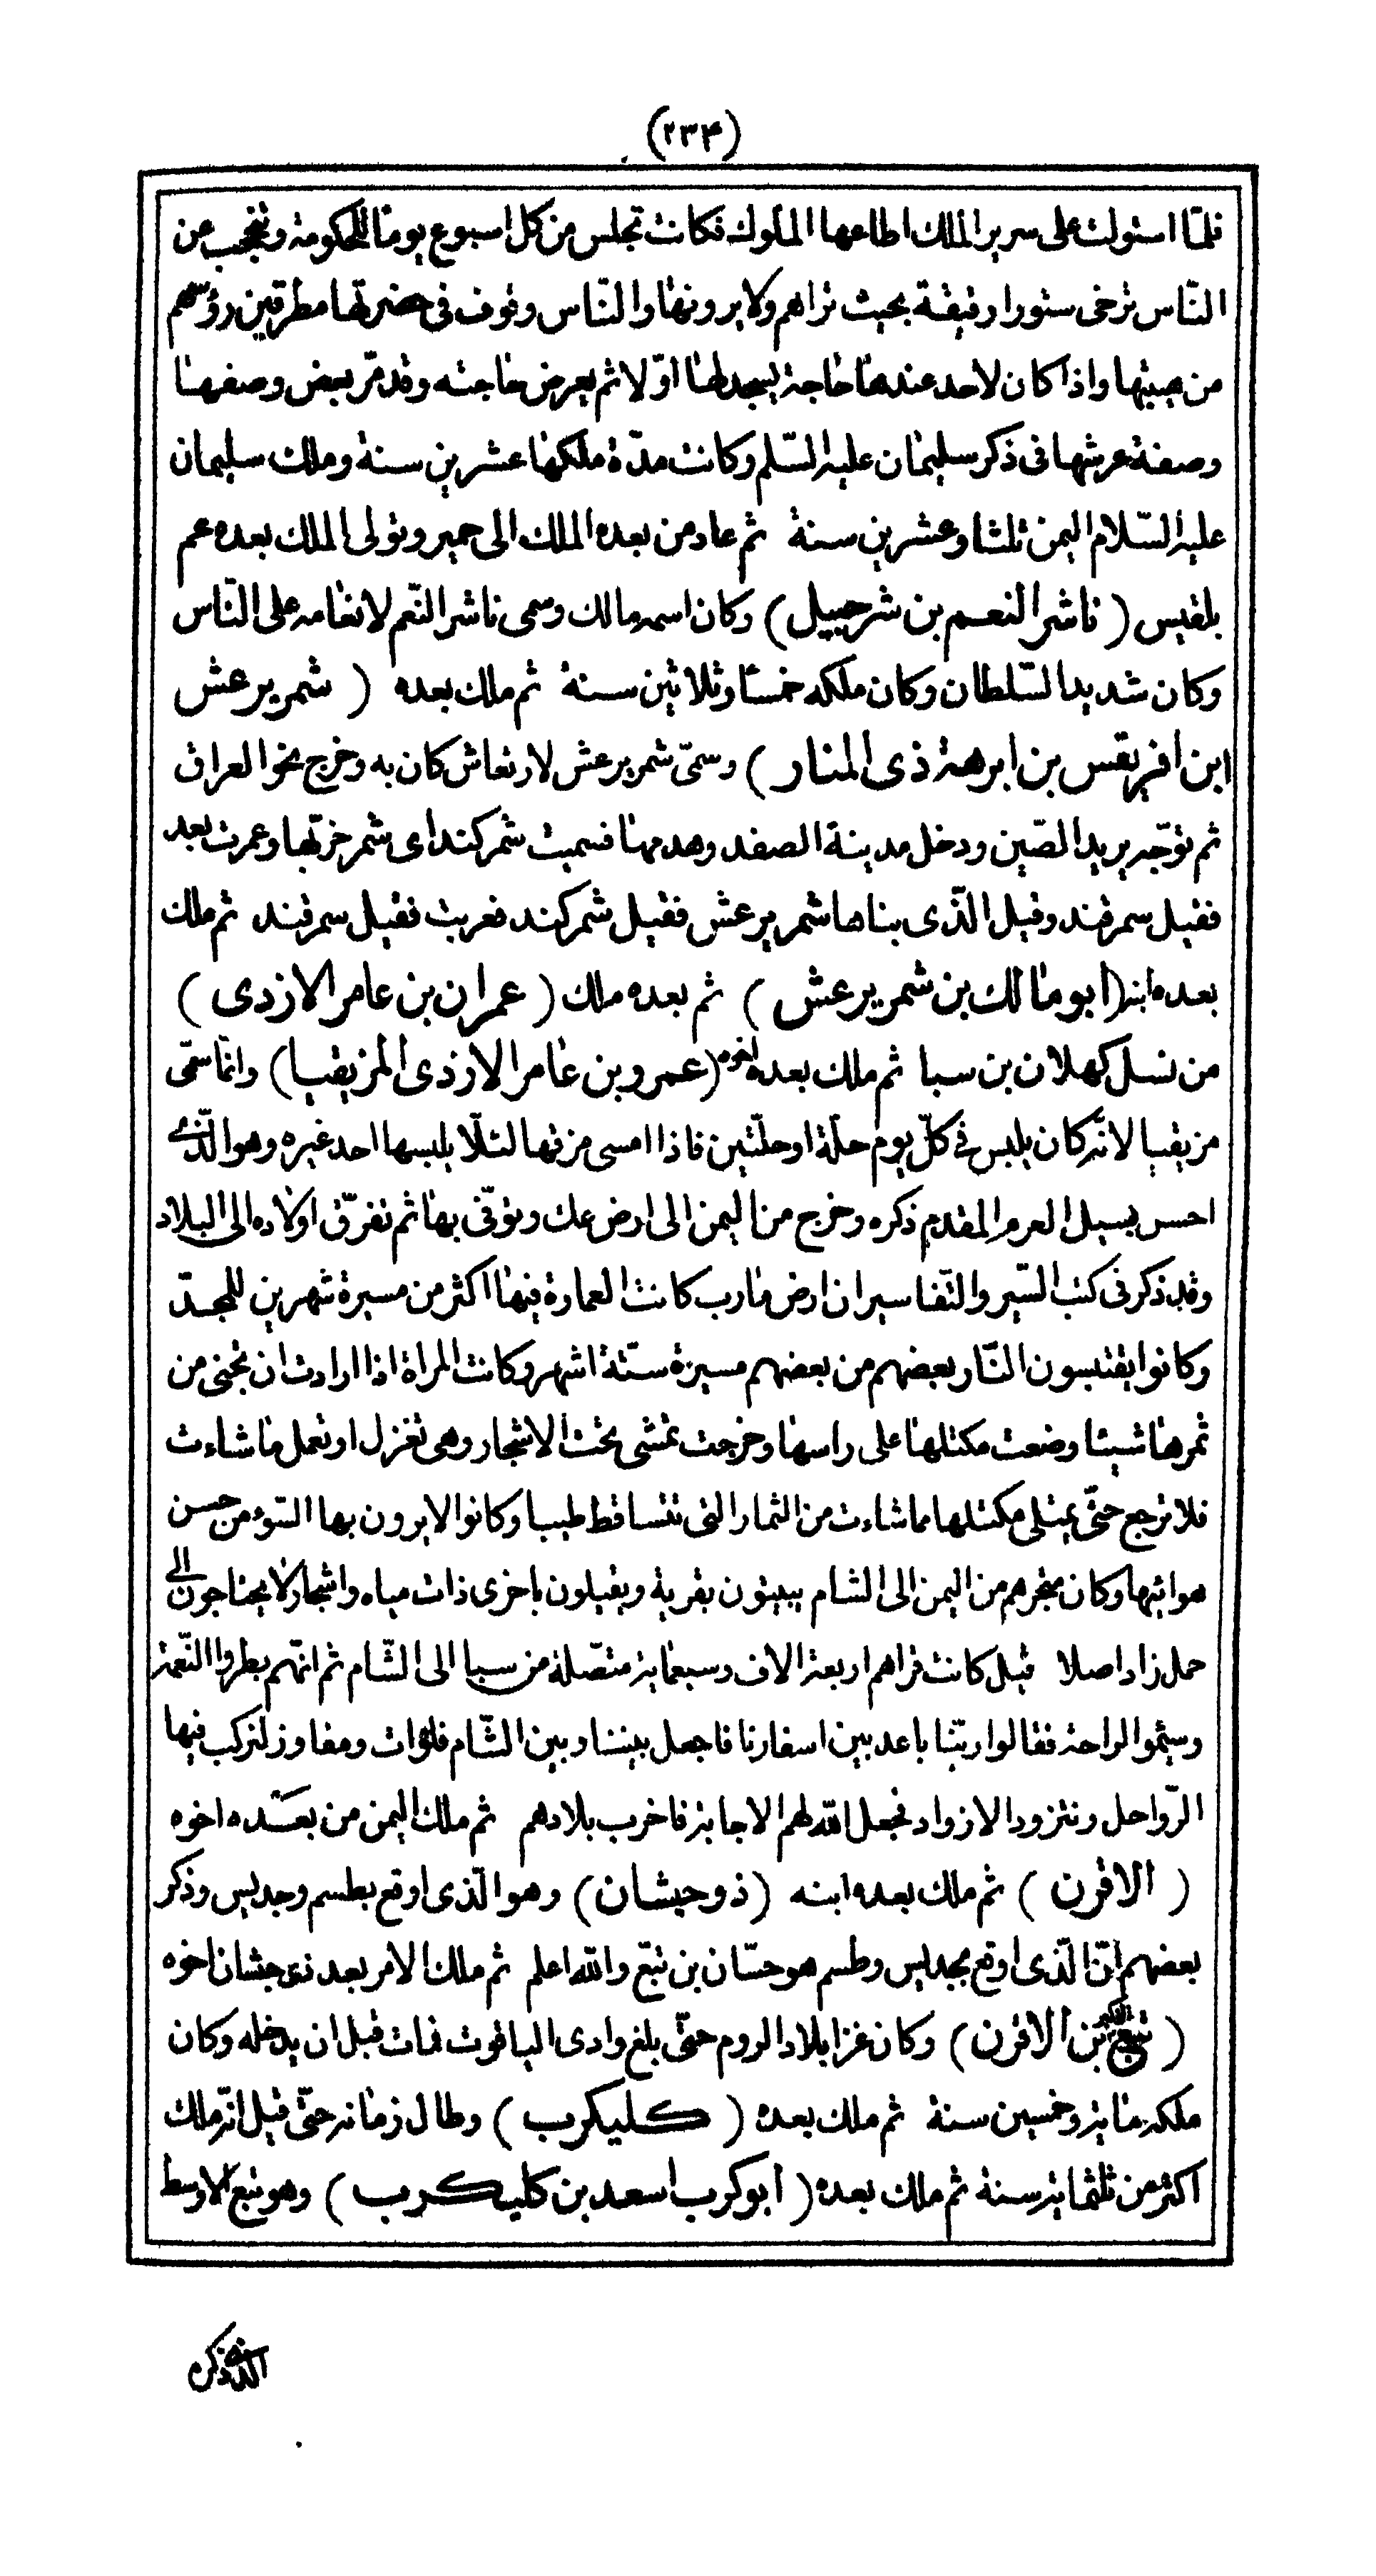 (٢٣۴)
فلمّا استولت على سرير الملك اطاعها الملوك فكانت تجلس من كل اسبوع يومًا للحكومة وتحجب من
النّاس ترخى ستورا رقيقة بحيث تراهم ولا يرونها والنّاس وقوف فى حضرتها مطرقين رؤسهم
من هيبتها واذا كان لاحد عندها حاجة يسجد لها اوّلا ثم يعرض حاجته وقد مرّ بعض وصفها
وصفة عرشها فى ذكر سليمان عليه السّلم وكانت مدّة ملكها عشرين سنة وملك سليمان
عليه السّلام اليمن ثلثا وعشرين سنة ثم عاد من بعده الملك الى حمير وتولى الملك بعده عم
بلقيس (ناشر النعم بن شرحبيل) وكان اسمه مالك وسمى ناشر النّعم لانعامه على النّاس
وكان شديد السّلطان وكان ملكه خمسًا وثلاثين سنة ثم ملك بعده (شمر يرعش
ابن افريقس بن ابرهة ذى المنار) وسمّى شمر يرعش لارتعاش كان به وخرج نحو العراق
ثم توجّه يريد الصّين ودخل مدينة الصفد وهدمها فسميت شمركند اى شمر خرّبها وعمرت بعد
فقيل سمرقند وقيل الّذى بناها شمر يرعش فقيل شمركند فعربت فقيل سمرقند ثم ملك
بعده ابنه (ابو مالك بن شمر يرعش) ثم بعده ملك (عمران بن عامر الازدى)
من نسل كهلان بن سبا ثم ملك بعده اخوه (عمرو بن عامر الازدى المزيقيا) وانّما سمّى
مزيقيا لانّه كان يلبس فى كلّ يوم حلّة او حلّتين فاذا امسى مزقها لئلّا يلبسها احد غيره وهو الّذى
احس بسيل العرم المقدم ذكره وخرج من اليمن الى ارض عك وتوفّى بها ثم تفرّق اولاده الى البلاد
وقد ذكر فى كتب السّير والتّفاسير ان ارض مارب كانت العمارة فيها اكثر من مسيرة شهرين للمجدّ
وكانوا يقتبسون النّار بعضهم من بعضهم مسيرة ستّة اشهر وكانت المراة اذا ارادت ان تجنى من
ثمرها شيئا وضعت مكتلها على راسها وخرجت تمشى تحت الاشجار وهى تغزل او تعمل ما شاءت
فلا ترجع حتّى يمتلى مكتلها مما شاءت من الثمار التى تتساقط طيبا وكانوا لا يرون بها السّوء من حسن
هوائها وكان متجرهم من اليمن الى الشام يبيتون بقرية ويقيلون باخرى ذات مياه واشجار لا يحتاجون الى
حمل زاد اصلا قيل كانت قراهم اربعة الاف وسبعماية متصلة من سبا الى الشّام ثم انّهم بطروا النّعمة
وسئموا الراحة فقالوا ربّنا باعد بين اسفارنا فاجعل بيننا وبين الشّام فلوات ومفاوز لنركب فيها
الرّواحل ونتزود الازواد فجعل الله لهم الاجابة فاخرب بلادهم ثم ملك اليمن من بعده اخوه
(الاقرن) ثم ملك بعده ابنه (ذو حبشان) وهو الّذى اوقع بطسم وجديس وذكر
بعضهم انّ الّذى اوقع بجديس وطسم هو حسّان بن تبّع والله اعلم ثم ملك الامر بعد ذى حبشان اخوه
(تبع الاكبر بن الاقرن) وكان غزا بلاد الروم حتّى بلغ وادى الياقوت فمات قبل ان يدخله وكان
ملكه ماية وخمسين سنة ثم ملك بعده (كليكرب) وطال زمانه حتّى قيل انّه ملك
اكثر من ثلثماية سنة ثم ملك بعده (ابو كرب اسعد بن كليكرب) وهو تبع الاوسط
الذى ذكره